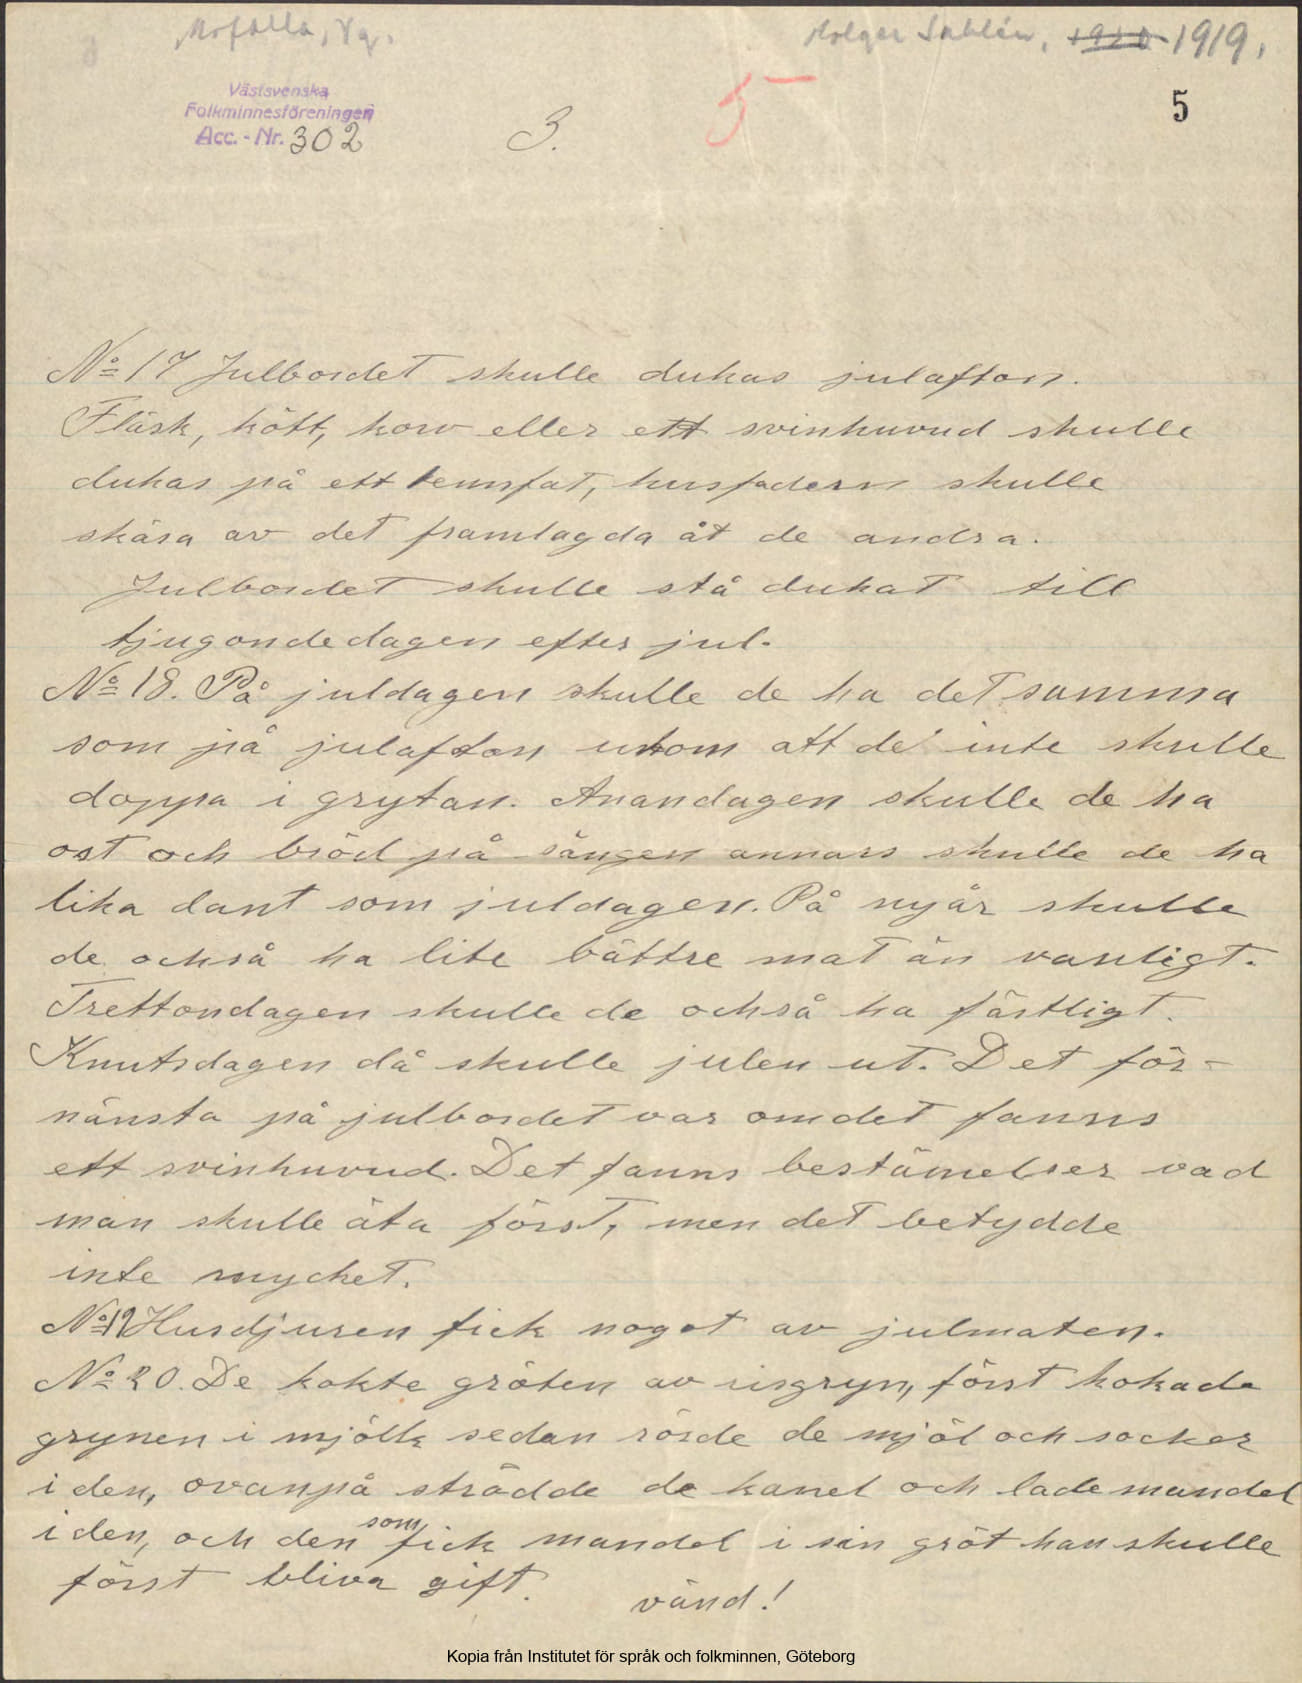 Mofalla, Vg.
Holger Sahlén, 1920 1919.
Västsvenska
Folkminnesföreningen
Acc. - Nr. 302
3.
5
5
No 17 Julbordet skulle dukas julafton.
Fläsk, kött, korv eller ett svinhuvud skulle
dukas på ett tennfat, husfadern skulle
skära av det framlagda åt de andra.
Julbordet skulle stå dukat till
tjugondedagen efter jul.
No 18. På juldagen skulle de ha det samma
som på julafton utom att de inte skulle
doppa i grytan. Anandagen skulle de ha
ost och bröd på sängen annars skulle de ha
lika dant som juldagen. På nyår skulle
de också ha lite bättre mat än vanligt.
Trettondagen skulle de också ha fästligt.
Knutsdagen då skulle julen ut. Det för-
nänsta på julbordet var om det fanns
ett svinhuvud. Det fanns bestämelser vad
man skulle äta först, men det betydde
inte mycket.
No 19 Husdjuren fick något av julmaten.
No 20. De kokte gröten av risgryn, först kokade
grynen i mjölk sedan rörde de mjöl och socker
i den, ovanpå strödde de kanel och lade mandel
i den, och den som fick mandel i sin gröt han skulle
först bliva gift.
vänd!
Kopia från Institutet för språk och folkminnen, Göteborg